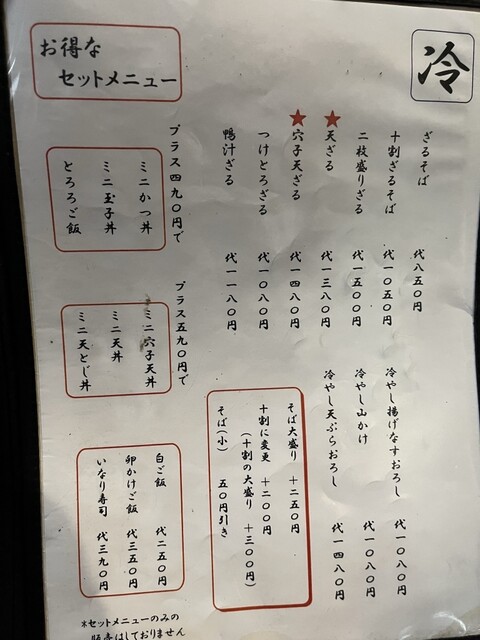 冷
ざるそば 代八五〇円
十割ざるそば 代一〇五〇円
二枚盛りざる 代一五〇〇円
★天ざる 代一三八〇円
★穴子天ざる 代一四八〇円
つけとろざる 代一〇八〇円
鴨汁ざる 代一一八〇円
冷やし揚げなすおろし 代一〇八〇円
冷やし山かけ 代一〇八〇円
冷やし天ぷらおろし 代一四八〇円
そば大盛り +二五〇円
十割に変更 +二〇〇円
(十割の大盛り +三〇〇円)
そば(小) 五〇円引き
お得な
セットメニュー
プラス四九〇円で
ミニかつ丼
ミニ玉子丼
とろろご飯
プラス五九〇円で
ミニ穴子天丼
ミニ天丼
ミニ天とじ丼
白ご飯 代二五〇円
卵かけご飯 代三五〇円
いなり寿司 代三九〇円
*セットメニューのみの
販売はしておりません